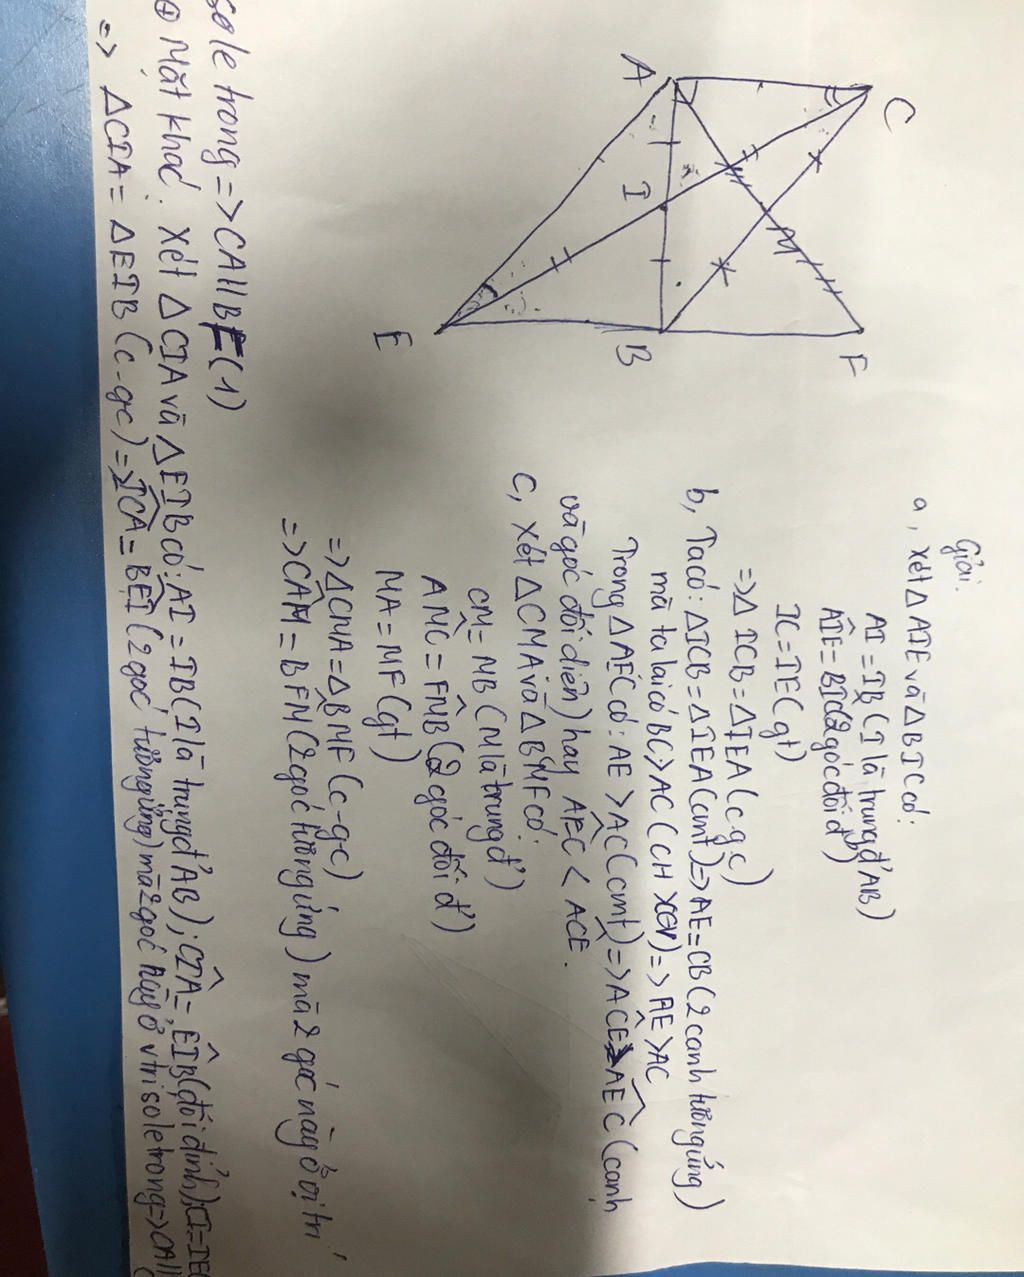 Giải:
a, Xét △ AIE và △ BIC có:
AI = IB (I là trung đ' AB)
AIE = BIC (2 góc đối đ')
IC = IE (gt)
=> △ ICB = △ IEA (c.g.c)
b, Ta có: △ ICB = △ IEA (cmt) => AE = CB (2 cạnh tương ứng)
mà ta lại có BC > AC (CH > CGV) => AE > AC
Trong △ AEC có: AE > AC (cmt) => ACE > AEC (cạnh
và góc đối diện) hay AEC < ACE.
c, Xét △ CMA và △ BMF có:
CM = MB (M là trung đ')
AMC = FMB (2 góc đối đ')
MA = MF (gt)
=> △ CMA = △ BMF (c-g-c)
=> CAM = BFM (2 góc tương ứng) mà 2 góc này ở vị trí
sole trong => CA // BF (1)
⊕ Mặt khác: Xét △ CIA và △ EIB có: AI = IB (I là trung đ' AB); CIA = EIB (đối đỉnh); CI = IE
=> △ CIA = △ EIB (c-gc) => ICA = BEI (2 góc tương ứng) mà 2 góc này ở vtri sole trong => CA //
A
C
I
M
E
B
F